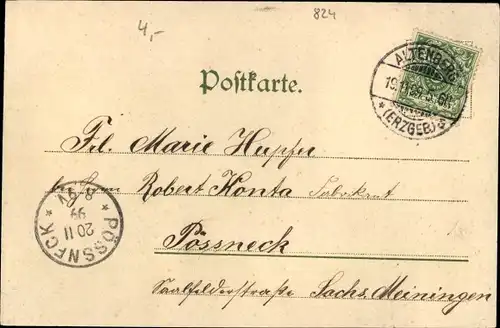 4,-
824
Postkarte.
ALTENBERG
19.11.99. 5-6N
*(ERZGEB.)*
Frl. Marie Hupfer
Robert Konta Fabrikant
Pössneck
Saalfelderstraße Sachs. Meiningen
* PÖSSNECK *
20 11
99
8-9V